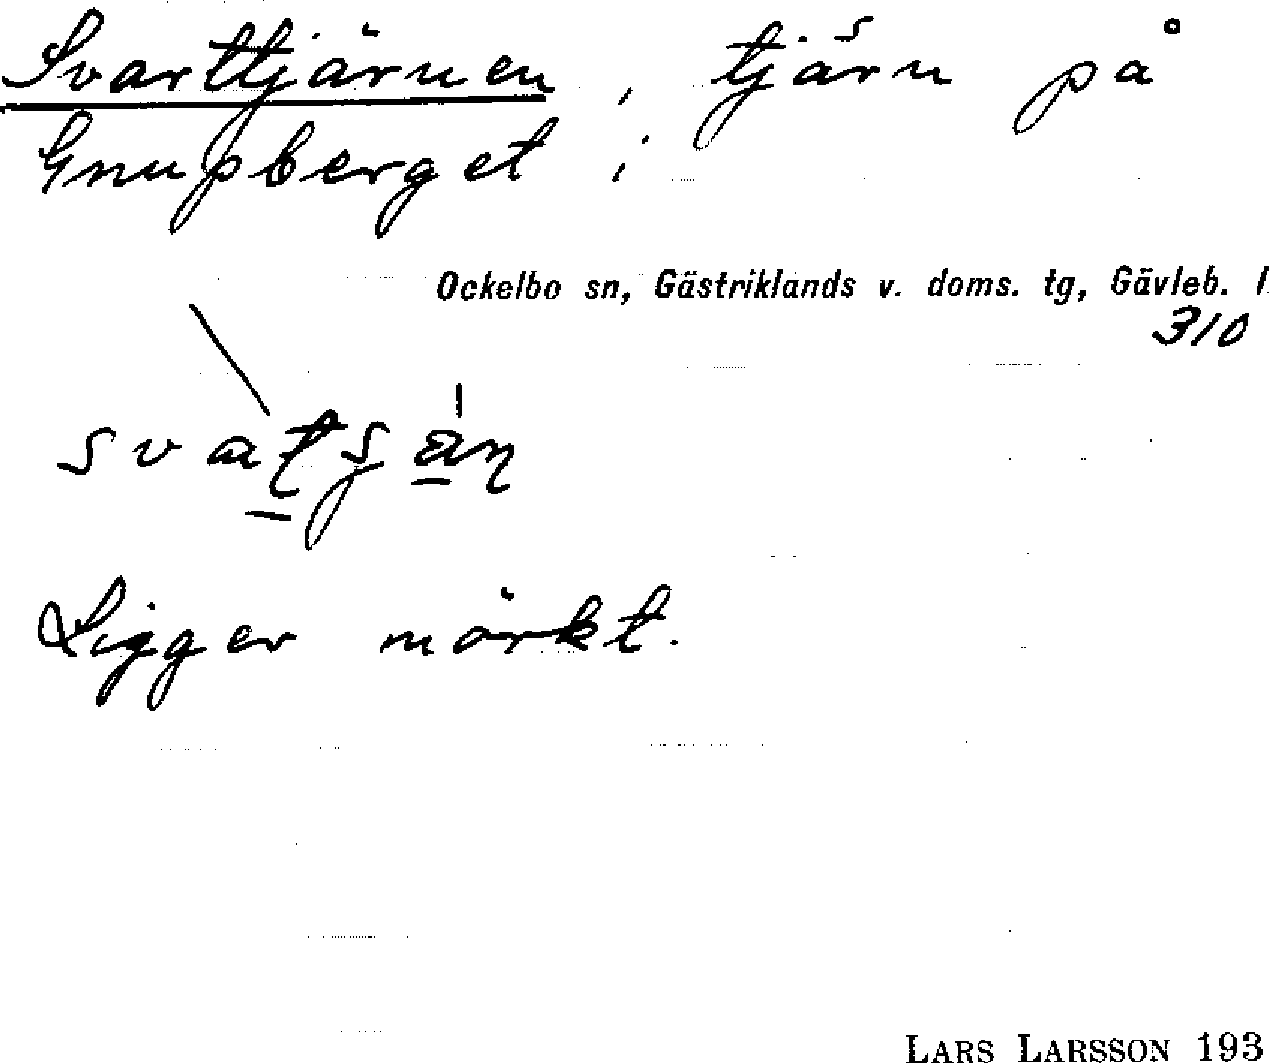 Svarttjärnen, tjärn på
Gnupberget i
Ockelbo sn, Gästriklands v. doms. tg, Gävleb. l
310
Ligger mörkt.
LARS LARSSON 193